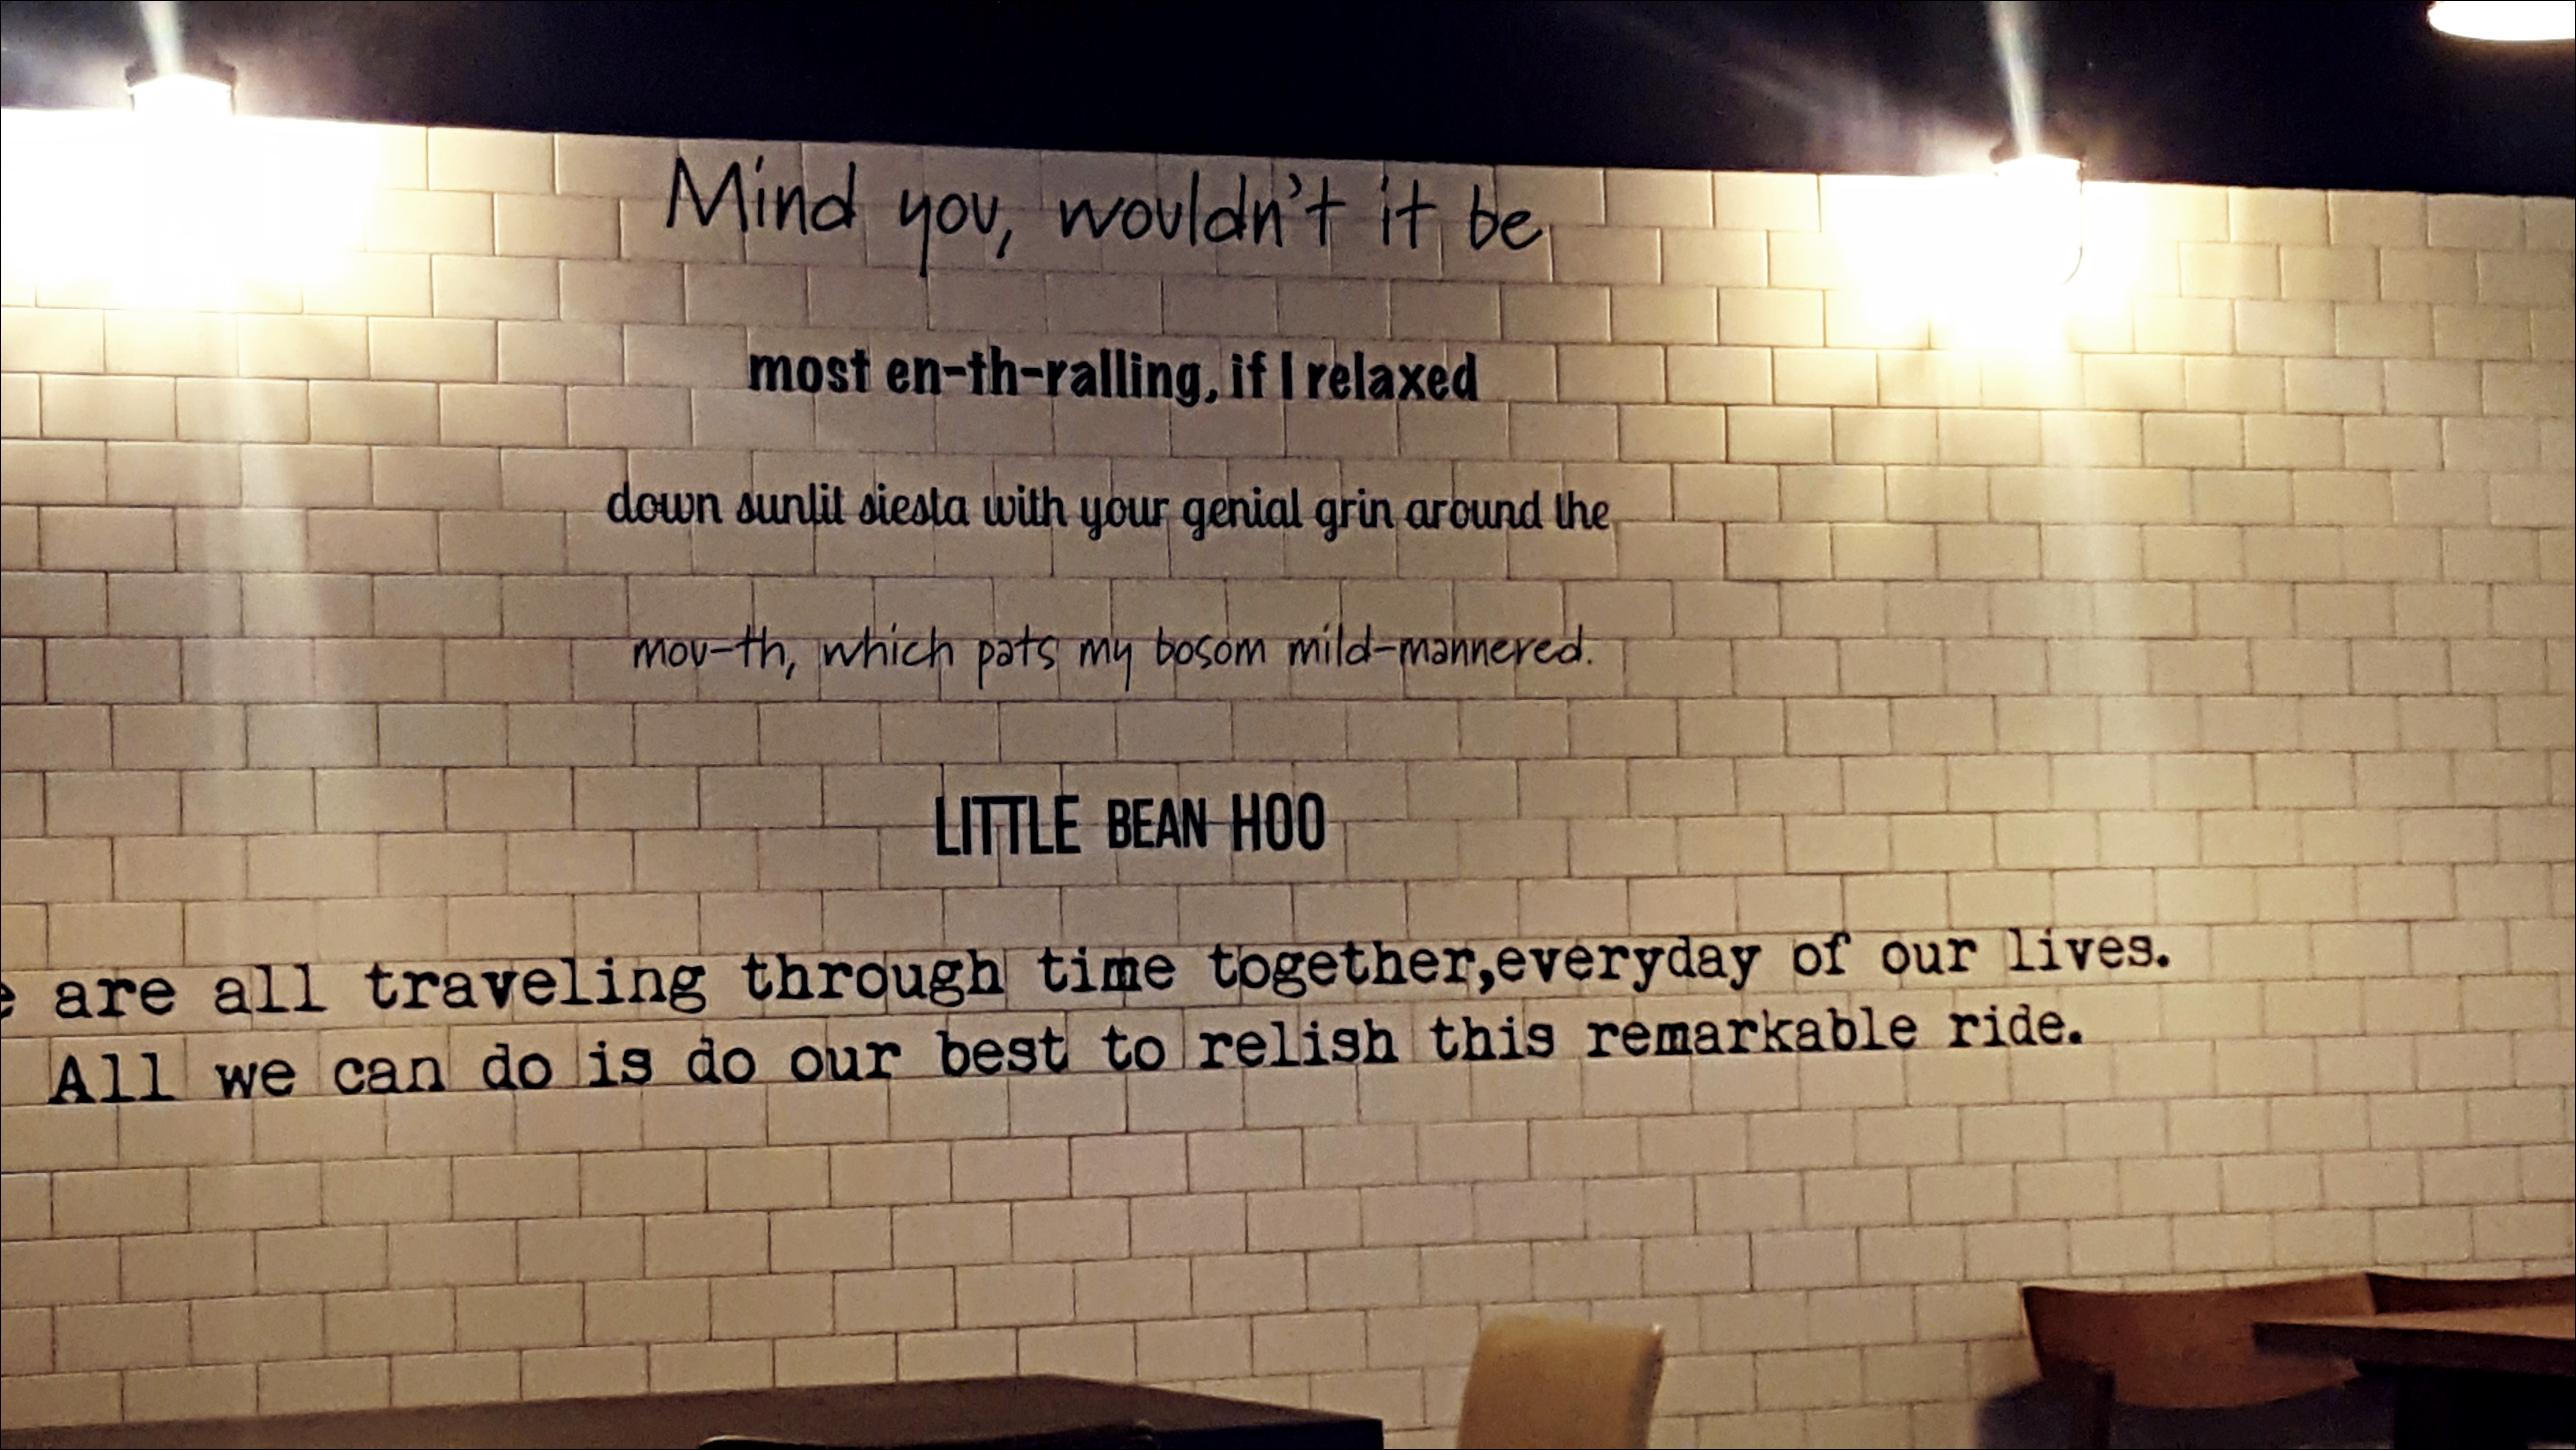 Mind you, wouldn't it be
most en-th-ralling, if I relaxed
down sunlit siesta with your genial grin around the
mou-th, which pats my bosom mild-mannered.
LITTLE BEAN HOO
are all traveling through time together,everyday of our lives.
All we can do is do our best to relish this remarkable ride.